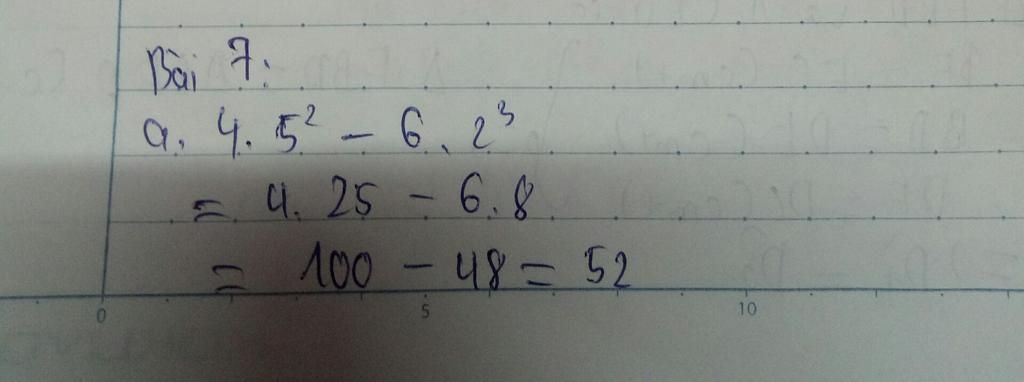 Bài 7:
a. 4. 5² - 6. 2³
= 4. 25 - 6.8
= 100 - 48 = 52
0 5 10